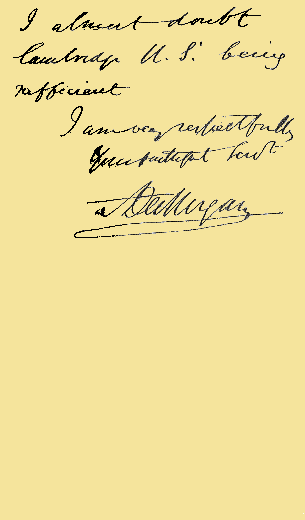 I almost doubt
Cambridge U.S. being
sufficient
I am very respectfully
Your faithful Servt
A De Morgan